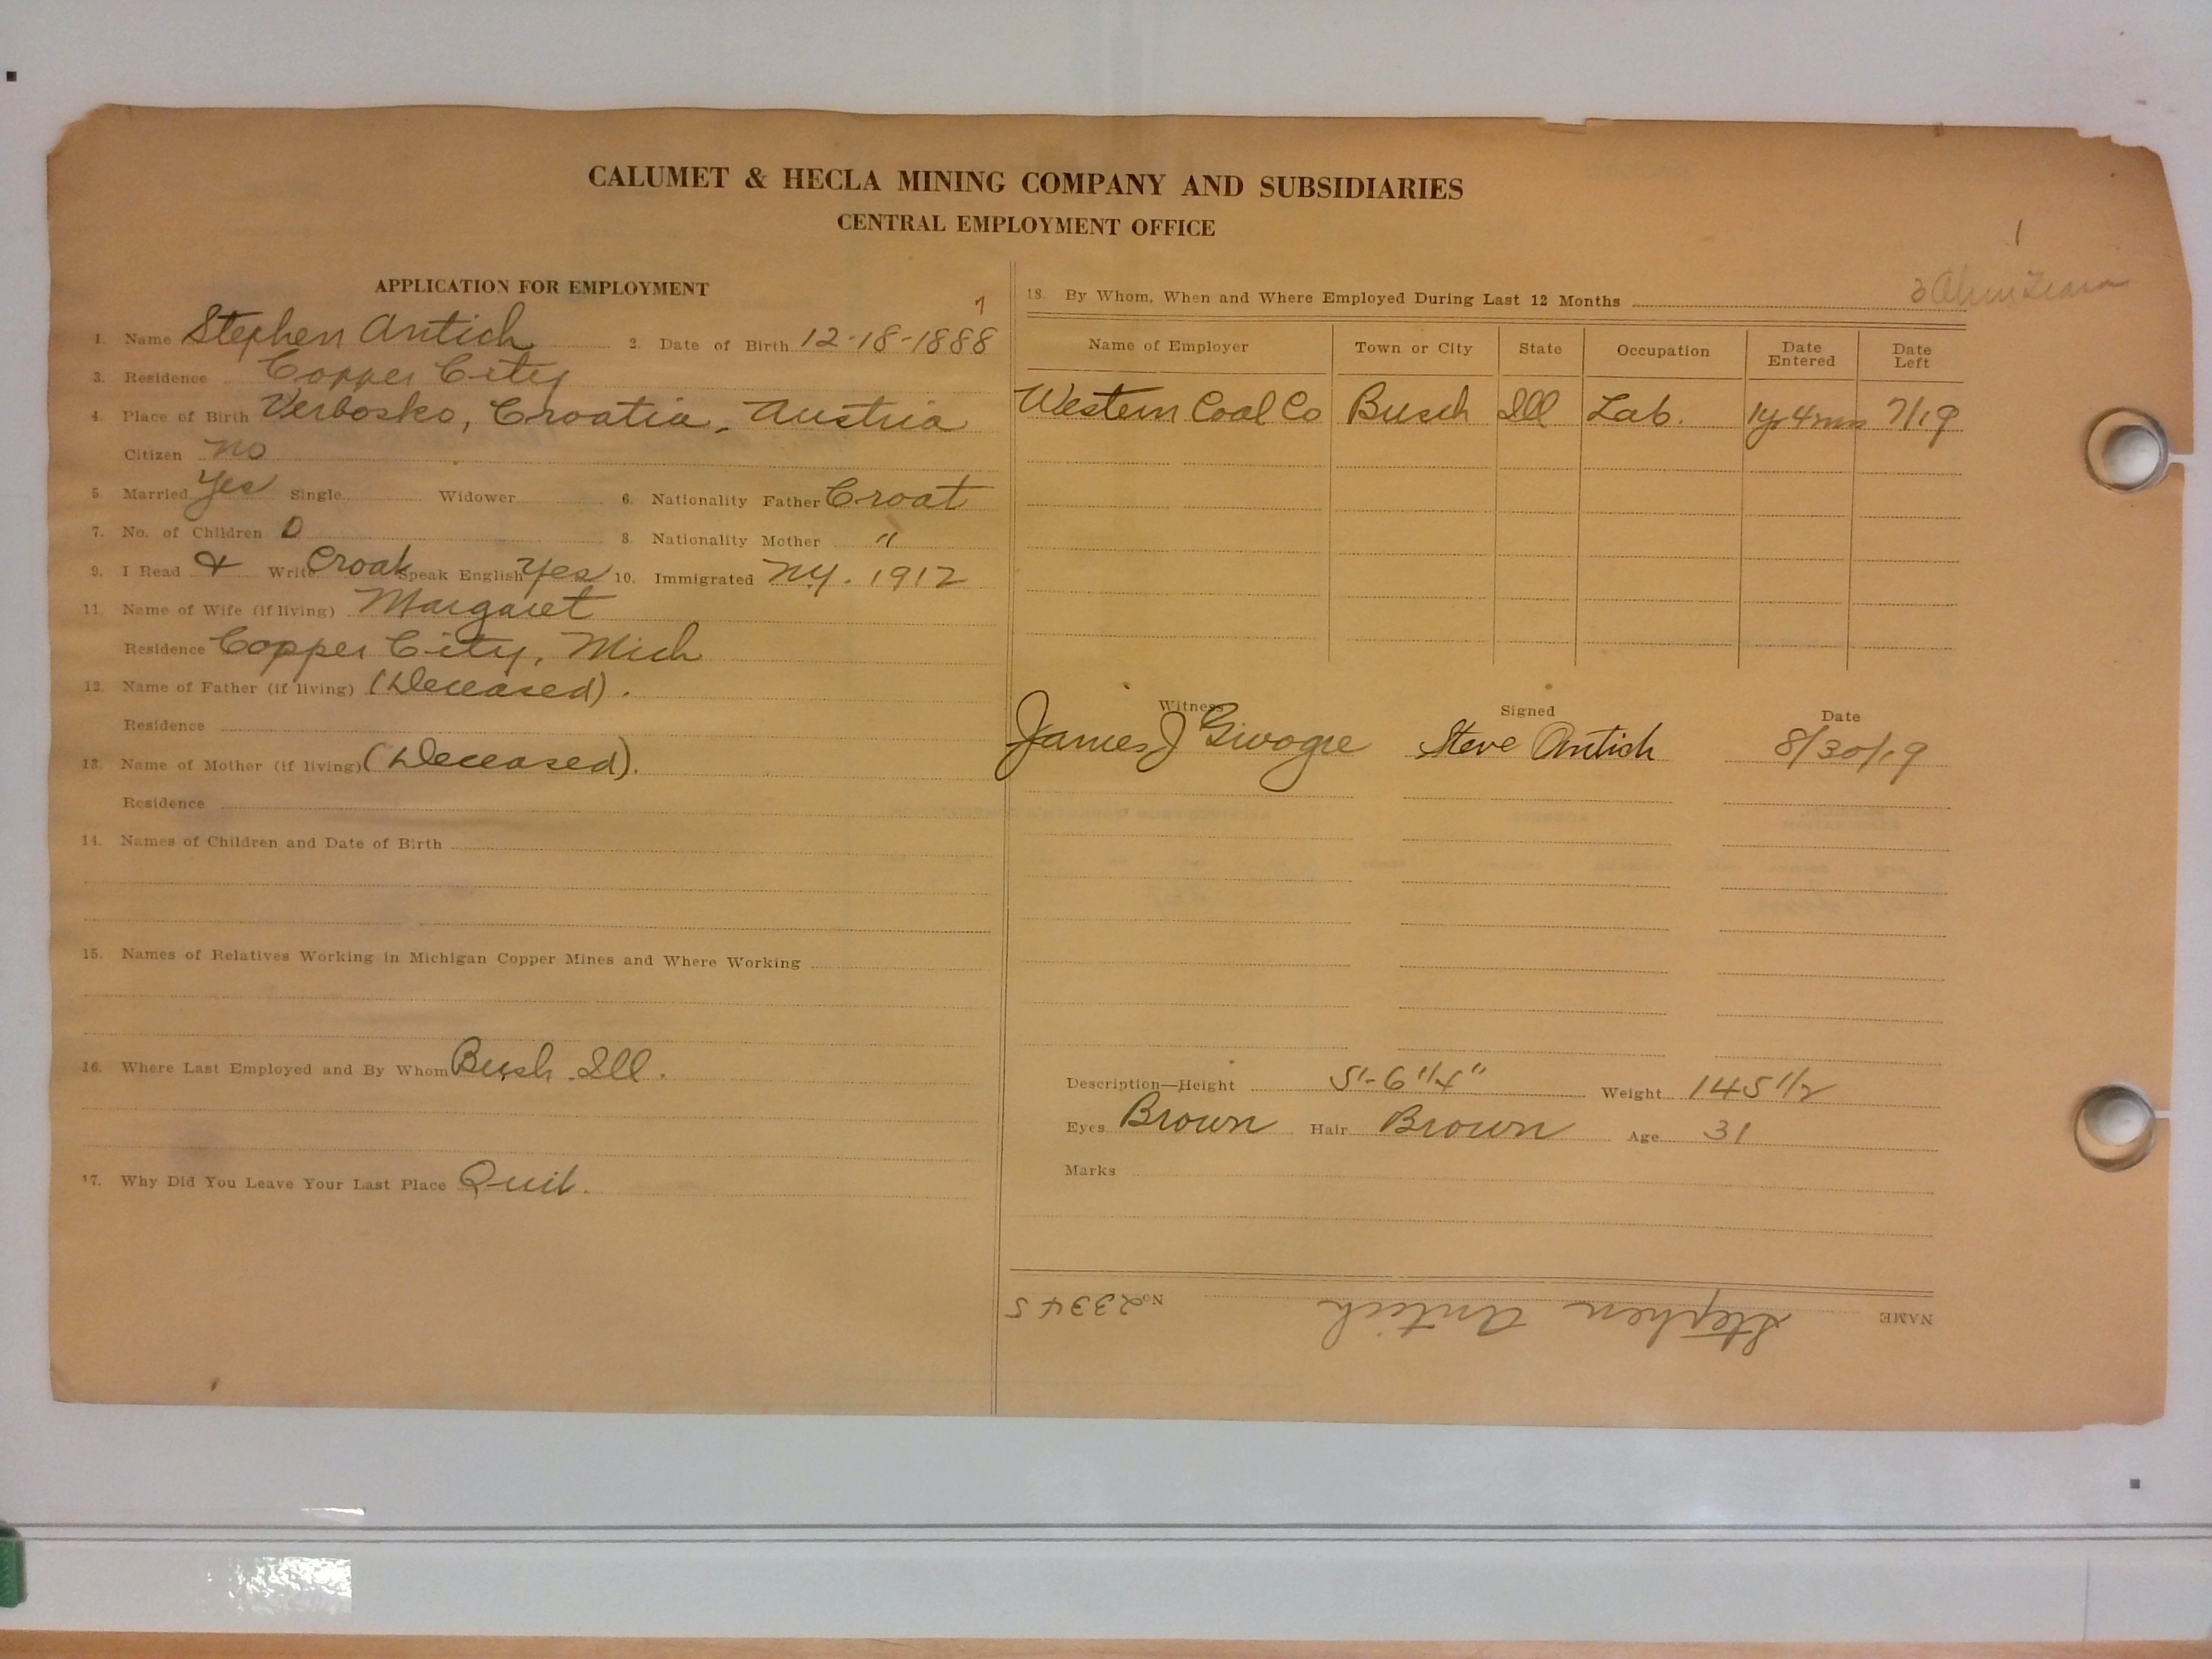 CALUMET & HECLA MINING COMPANY AND SUBSIDIARIES
CENTRAL EMPLOYMENT OFFICE
1
APPLICATION FOR EMPLOYMENT
7
1. Name Stephen Antich 2. Date of Birth 12-18-1888
3. Residence Copper City
4. Place of Birth Verbosko, Croatia, Austria
Citizen no
5 Married Yes Single Widower 6. Nationality Father Croat
7. No. of Children 0 8. Nationality Mother "
9. I Read & Write Croat Speak English Yes 10. Immigrated N.Y. 1912
11. Name of Wife (if living) Margaret
Residence Copper City, Mich
12. Name of Father (if living) (Deceased).
Residence
13. Name of Mother (if living) (Deceased).
Residence
14. Names of Children and Date of Birth
15. Names of Relatives Working in Michigan Copper Mines and Where Working
16. Where Last Employed and By Whom Bush Ill.
17. Why Did You Leave Your Last Place Quit.
18. By Whom, When and Where Employed During Last 12 Months 3
Name of Employer Town or City State Occupation Date Entered Date Left
Western Coal Co Busch Ill Lab. 1yr 4mos 7/19
Witness Signed Date
James J Steve Antich 8/30/19
Description—Height 5'-6 1/4" Weight 145 1/2
Eyes Brown Hair Brown Age 31
Marks
NAME Stephen Antich No. 23345